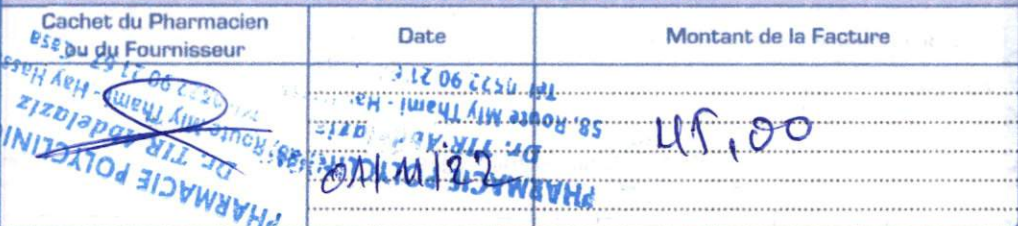 Cachet du Pharmacien
ou du Fournisseur
Date
Montant de la Facture
PHARMACIE POLYCLINI
Dr. TIR Abdelaziz
Route Mly Thami - Hay Hass
0522 90 21
Casa
PHARMACIE POLY
Dr. TIR Ab
58, Route Mly Thami - Ha
Tél 0522 90 21
01/11/22
45,00